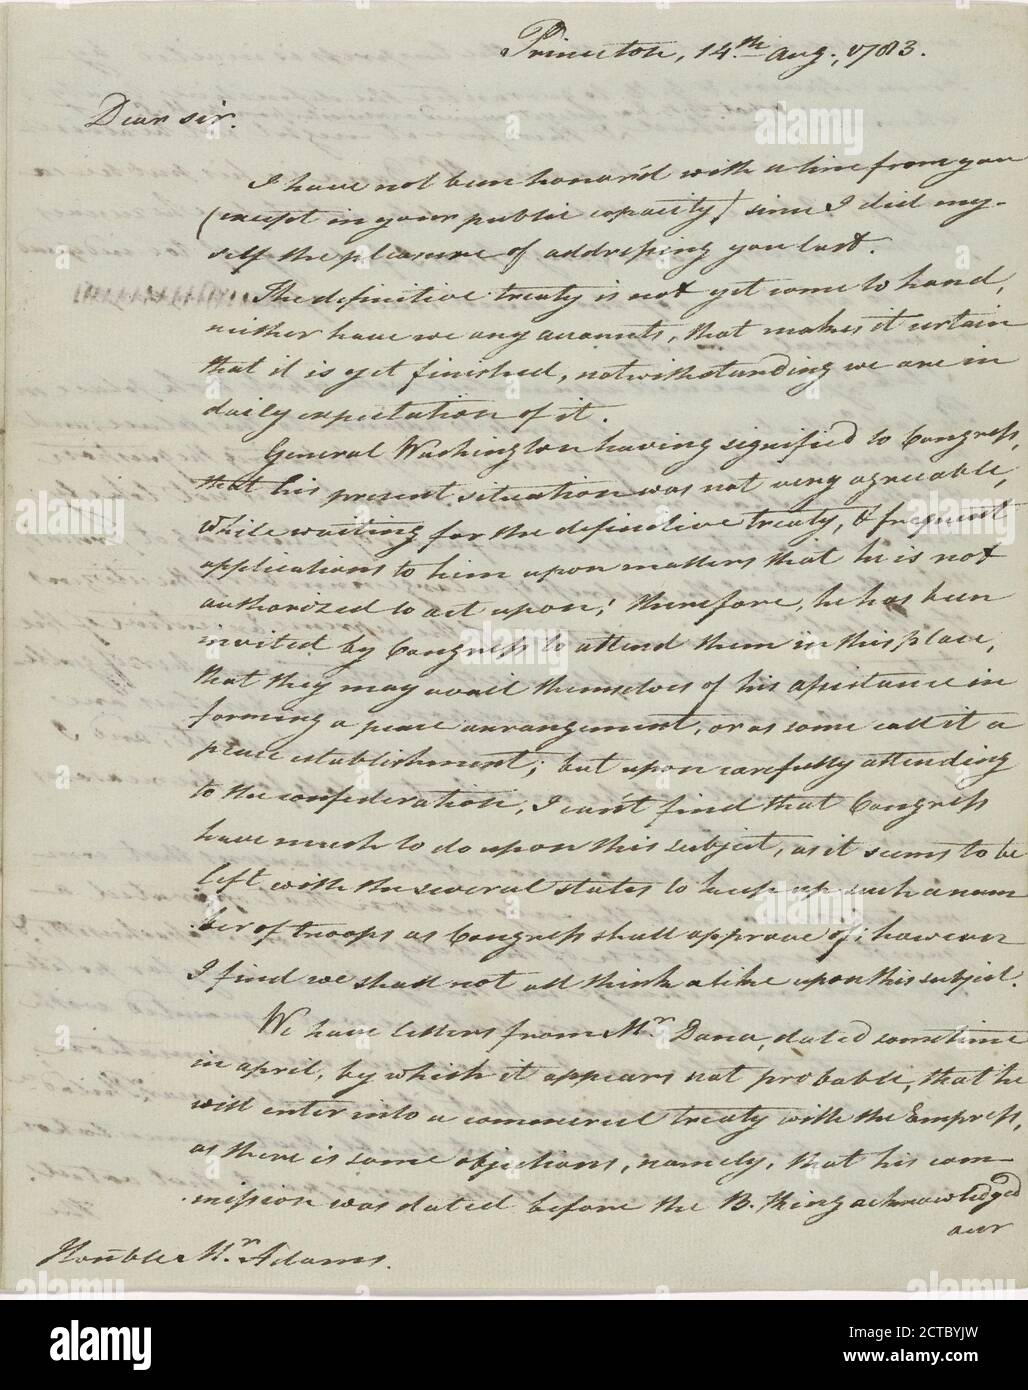 Princeton, 14.th Aug., 1783.
Dear sir.
I have not been honor'd with a line from you
(except in your public capacity) since I did my-
self the pleasure of addressing you last.
The definitive treaty is not yet come to hand,
neither have we any accounts, that makes it certain
that it is yet finished, notwithstanding we are in
daily expectation of it.
General Washington having signified to Congress,
that his present situation was not very agreeable,
while waiting for the definitive treaty, & frequent
applications to him upon matters that he is not
authorized to act upon; therefore, he has been
invited by Congress to attend them in this place,
that they may avail themselves of his assistance in
forming a peace arrangement, or as some call it a
peace establishment; but upon carefully attending
to the confederation, I can't find that Congress
have much to do upon this subject, as it seems to be
left with the several states to keep up such a num
ber of troops as Congress shall approve of; however
I find we shall not all think alike upon this subject.
We have letters from Mr. Dana, dated sometime
in april, by which it appears not probable, that he
will enter into a commercial treaty with the Empress,
as there is some objections, namely, that his com-
mission was dated before the B. King acknowledged
our
Honble Mr. Adams.
alamy
Image ID: 2CTBYJW
www.alamy.com